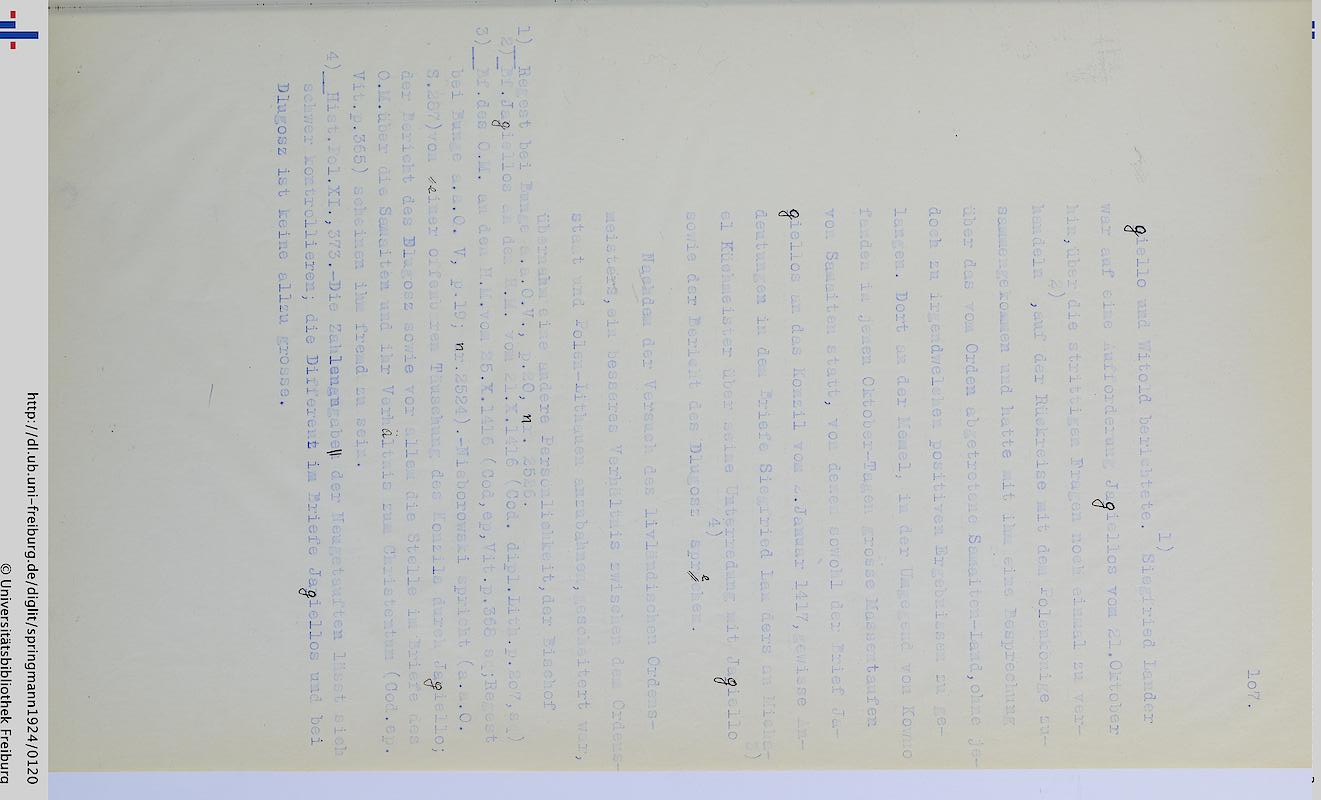 1o7.
1)
giello und Witold berichtete. Siegfried Lander
war auf eine Aufforderung Jagiellos vom 21.Oktober
hin, über die strittigen Fragen noch einmal zu ver-
2)
handeln ,auf der Rückreise mit dem Polenkönige zu-
sammengekommen und hatte mit ihm eine Besprechung
über das vom Orden abgetretene Samaiten-Land, ohne je-
doch zu irgendwelchen positiven Ergebnissen zu ge-
langen. Dort an der Memel, in der Umgegend von Kowno
fanden in jenen Oktober-Tagen grosse Massentaufen
von Samaiten statt, von denen sowohl der Brief Ja-
giellos an das Konzil vom 2.Januar 1417, gewisse An-
3)
deutungen in dem Briefe Siegfried Lan ders an Micha-
el Küchmeister über seine Unterredung mit Jagiello
4)
sowie der Bericht des Dlugosz sprechen.
Nachdem der Versuch des livländischen Ordens-
meisters, ein besseres Verhältnis zwischen dem Ordens-
staat und Polen-Lithauen anzubahnen, gescheitert war,
übernahm eine andere Persönlichkeit, der Bischof
1) Regest bei Bunge a.a.O.V., p.20, nr. 2526.
2) Bf.Jagiellos an den H.M. vom 21.X.1416 (Cod. dipl.Lith.p.2o7,s.)
3) Bf.des O.M. an den H.M.vom 25.X.1416 (Cod,ep,Vit.p.368 s;;Regest
bei Bunge a.a.O. V, p.19; nr.2524).-Nieborowski spricht (a.a.O.
S.287)von einer offenbaren Täuschung des Konzils durch Jagiello;
der Bericht des Dlugosz sowie vor allem die Stelle im Briefe des
O.M.über die Samaiten und ihr Verhältnis zum Christentum (Cod.ep.
Vit.p.365) scheinen ihm fremd zu sein.
4) Hist.Pol.XI.,373.-Die Zahlenangaben der Neugetauften lässt sich
schwer kontrollieren; die Differenz im Briefe Jagiellos und bei
Dlugosz ist keine allzu grosse.
http://dl.ub.uni-freiburg.de/diglit/springmann1924/0120
© Universitätsbibliothek Freiburg